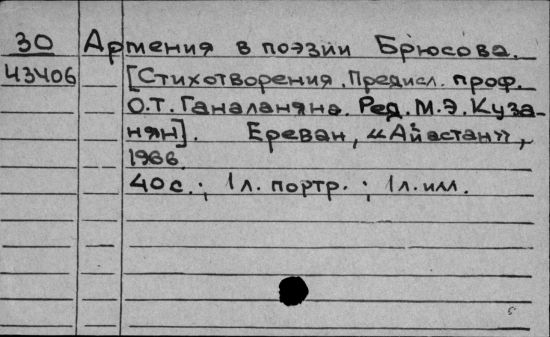 30 Армения в поэзии Брюсова.
43406 [Стихотворения. Предисл. проф.
О.Т. Ганаланяна. Ред. М.Э. Куза-
нян]. Ереван, «Айастан»,
1966.
40 с.; 1 л. портр.; 1 л. илл.